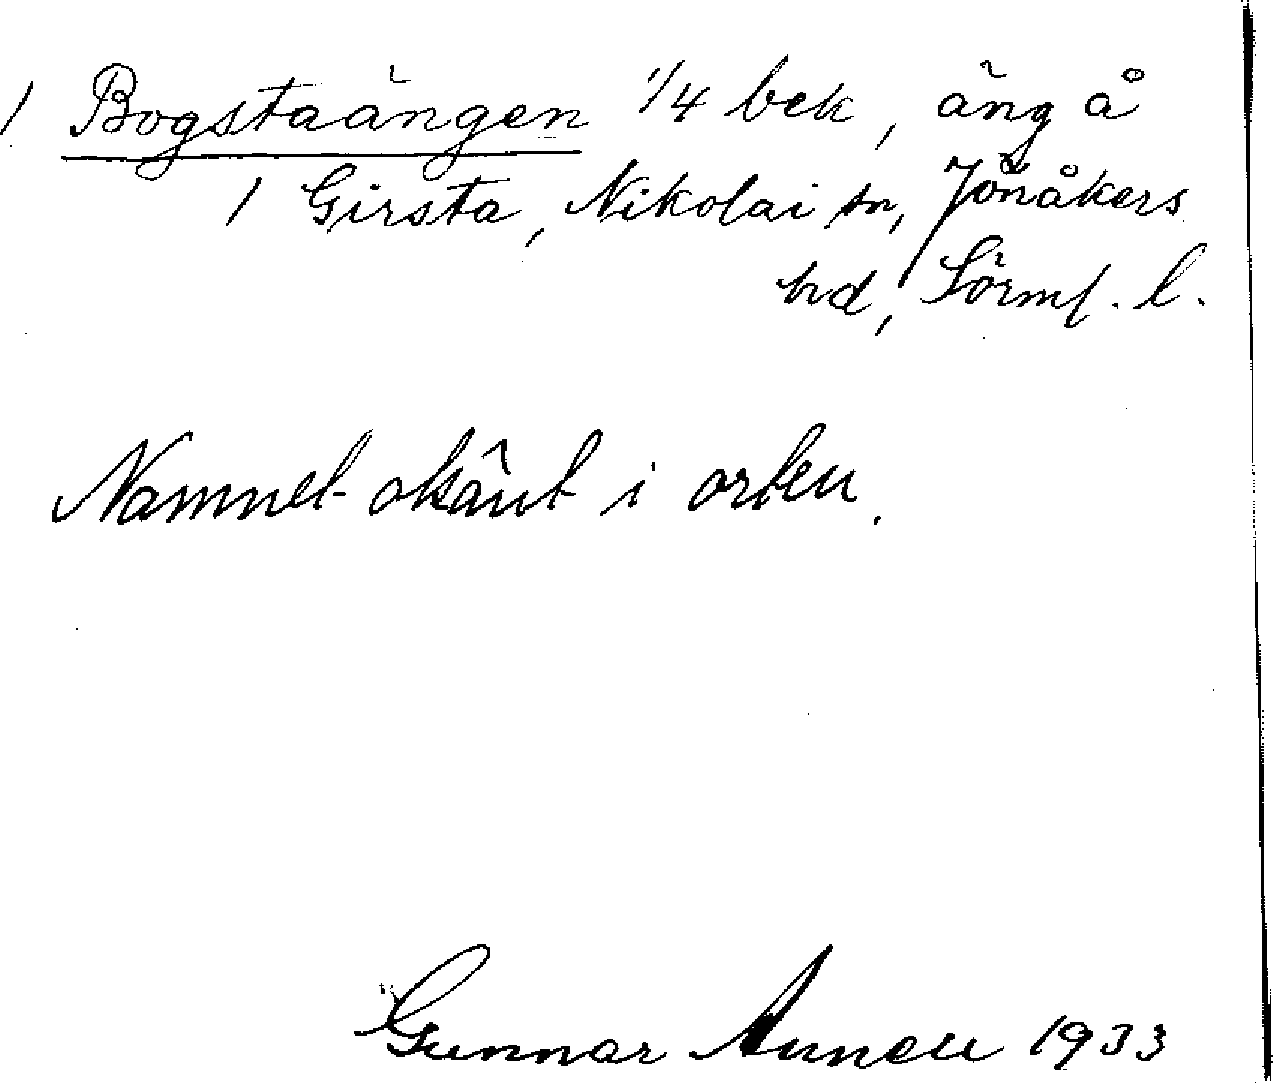 / Bogstaängen 1/4 bek, äng å
/ Girsta, Nikolai sn, Jönåkers
hd, Sörml. l.
Namnet okänt i orten.
Gunnar Annell 1933